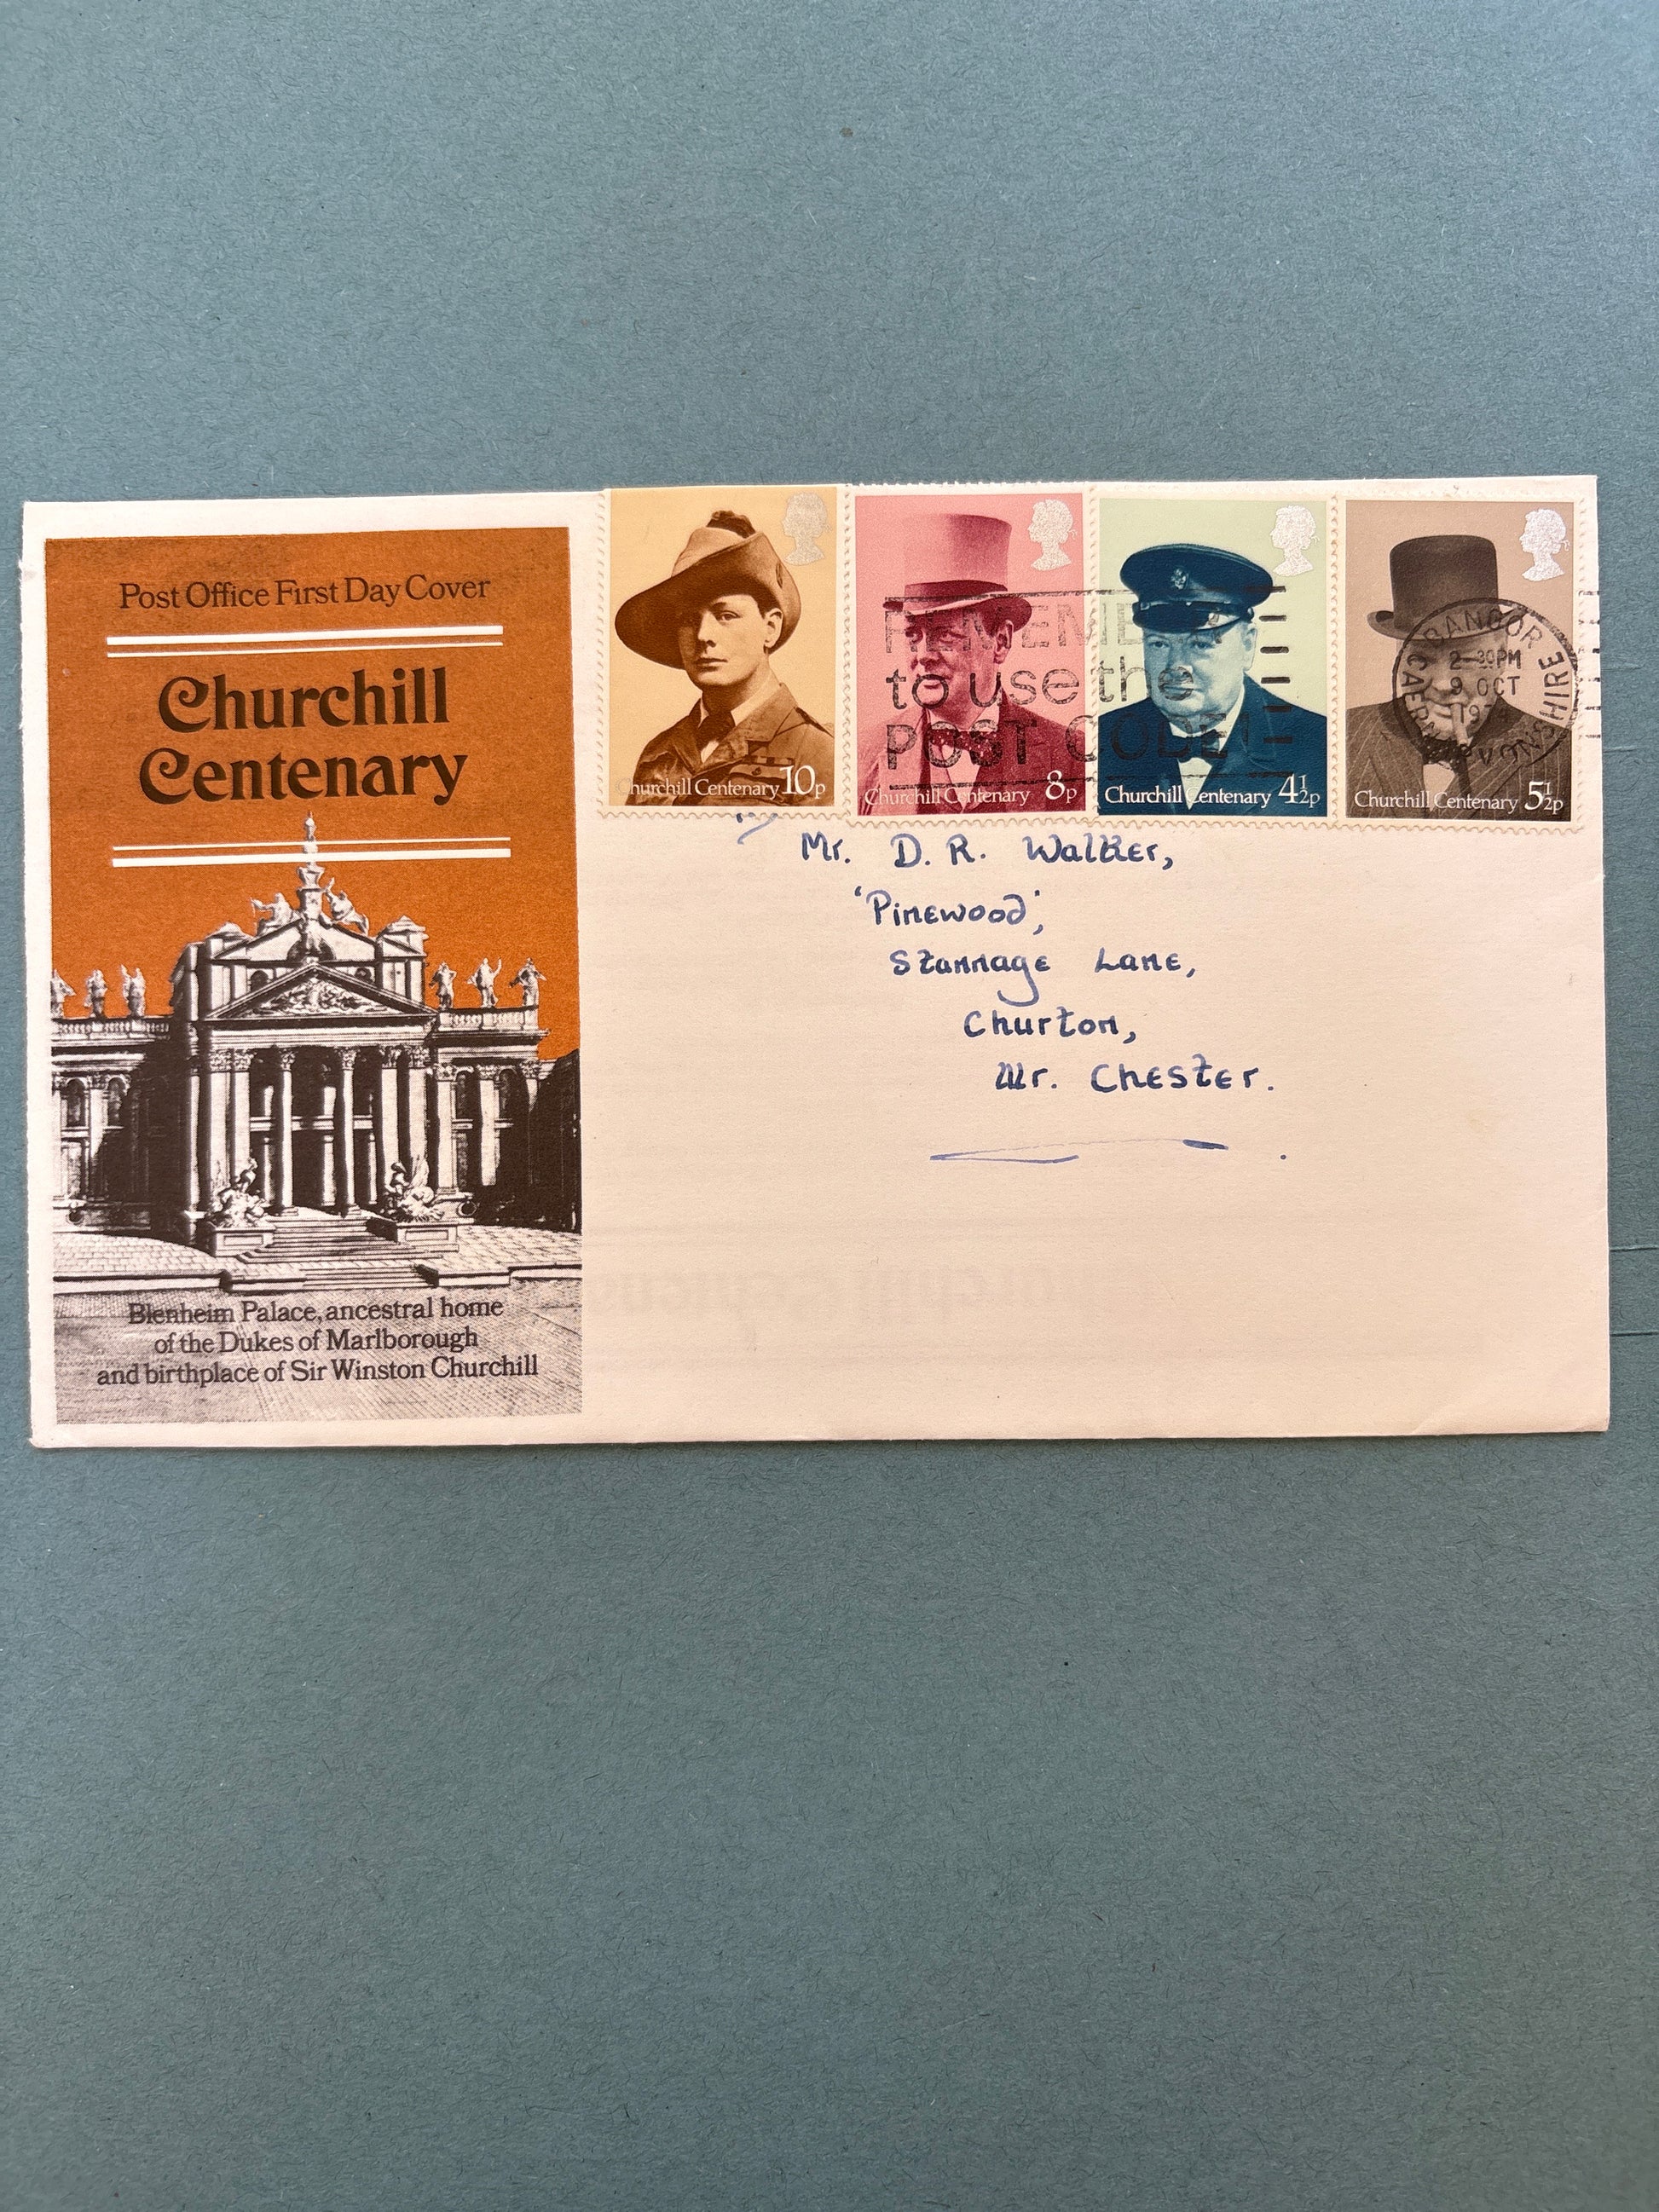 Post Office First Day Cover
Churchill
Centenary
Blenheim Palace, ancestral home
of the Dukes of Marlborough
and birthplace of Sir Winston Churchill
Churchill Centenary 10p
Churchill Centenary 8p
Churchill Centenary 4½p
Churchill Centenary 5½p
REMEMBER
to use the
POST CODE
BANGOR
2-30PM
9 OCT
1974
CAERNARVONSHIRE
Mr. D. R. Walker,
'Pinewood',
Stannage Lane,
Churton,
Nr. Chester.